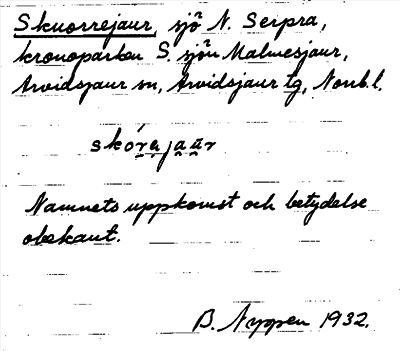 Skuorrejaur, sjö N. Serpra,
kronoparken S. sjön Malmesjaur,
Arvidsjaur sn, Arvidsjaur tg, Norrb. l.
skóra̮jau̯r
Namnets uppkomst och betydelse
obekant.
B. Nyppen 1932.